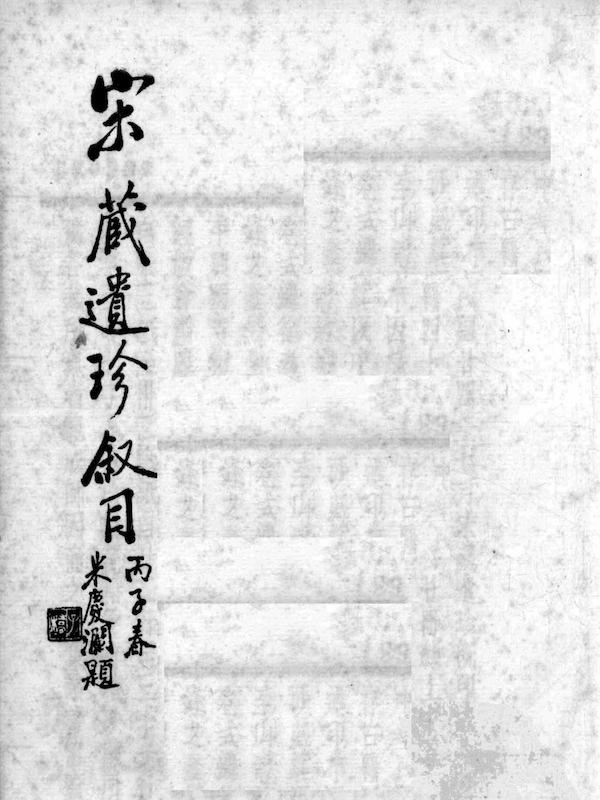 宋藏遺珍叙目
丙子春
朱慶瀾題